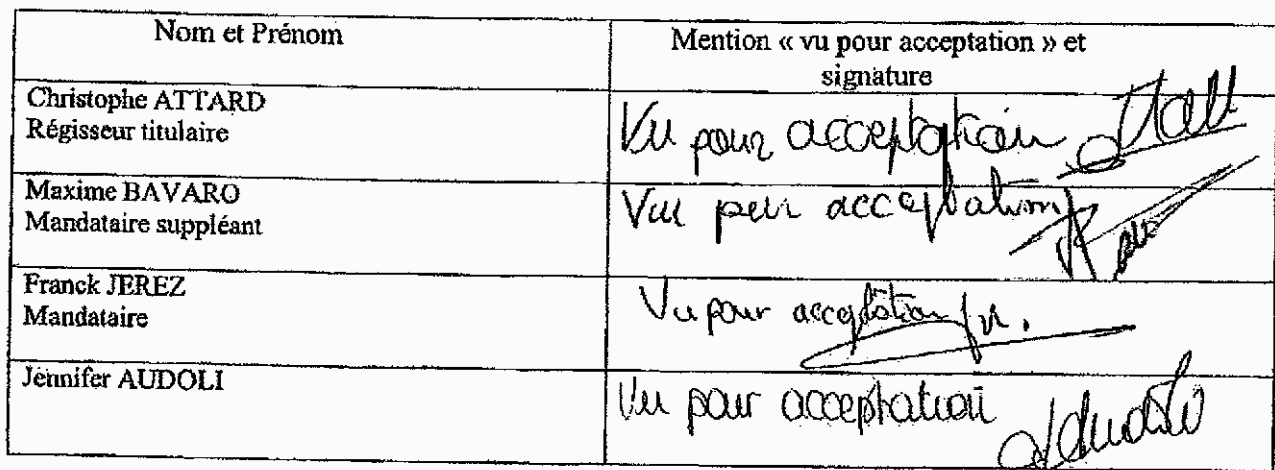 Nom et Prénom
Mention « vu pour acceptation » et
signature
Christophe ATTARD
Régisseur titulaire
Vu pour acceptation
Maxime BAVARO
Mandataire suppléant
Vu pour acceptation
Franck JEREZ
Mandataire
Vu pour acceptation
Jennifer AUDOLI
Vu pour acceptation